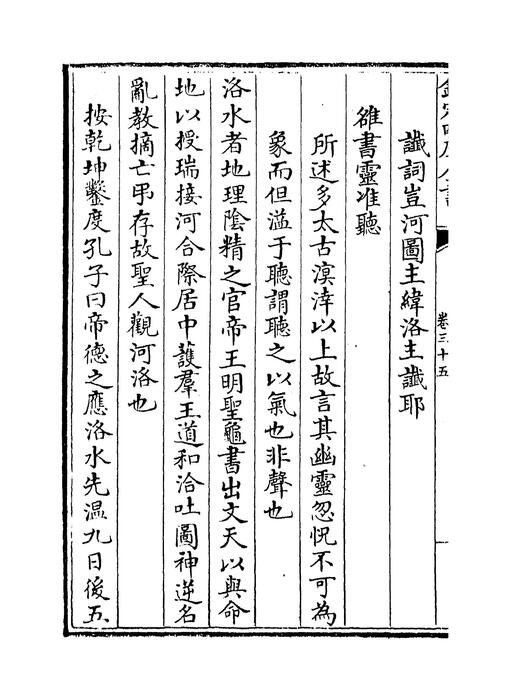 欽定四庫全書
卷三十五
讖詞豈河圖主緯洛主讖耶
雒書靈准聽
所述多太古溟涬以上故言其幽靈忽怳不可為
象而但滋于聽謂聽之以氣也非聲也
洛水者地理陰精之官帝王明聖龜書出文天以與命
地以授瑞接河合際居中護羣王道和洽吐圖神逆名
亂教摘亡弔存故聖人觀河洛也
按乾坤鑿度孔子曰帝德之應洛水先温九日後五